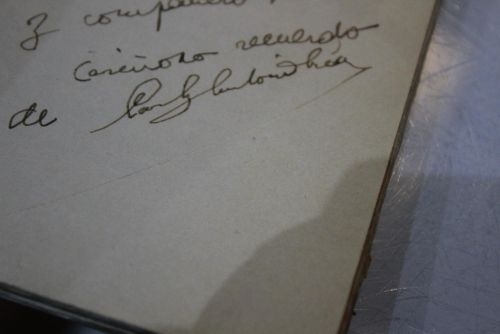 y compañero
Cariñoso recuerdo
de